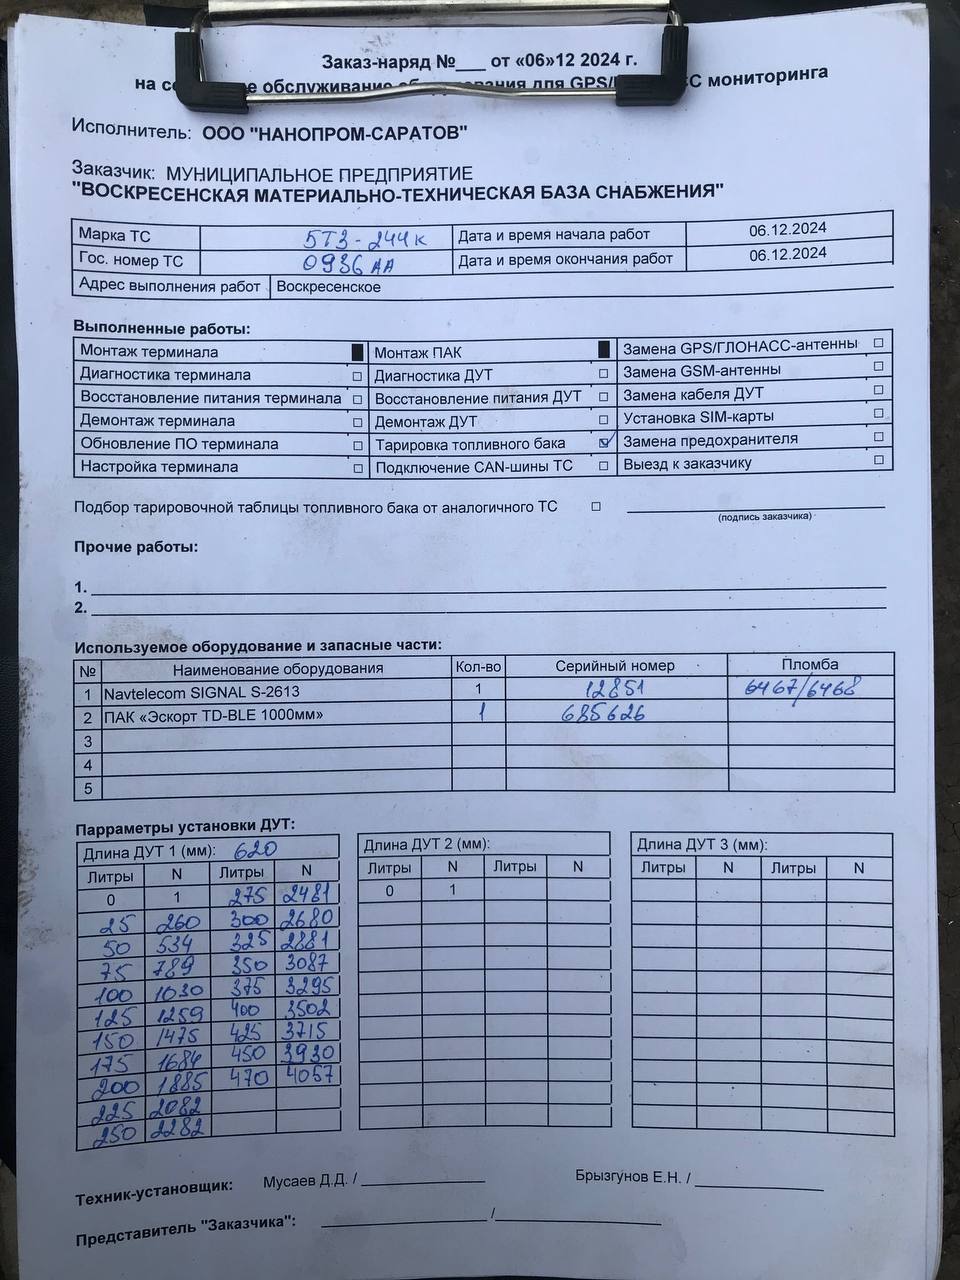 Заказ-наряд №___ от «06»12 2024 г.
на се е обслуживание оборудования для GPS/ СС мониторинга
Исполнитель: ООО "НАНОПРОМ-САРАТОВ"
Заказчик: МУНИЦИПАЛЬНОЕ ПРЕДПРИЯТИЕ
"ВОСКРЕСЕНСКАЯ МАТЕРИАЛЬНО-ТЕХНИЧЕСКАЯ БАЗА СНАБЖЕНИЯ"
Марка ТС 5ТЗ-244к Дата и время начала работ 06.12.2024
Гос. номер ТС 0936 АА Дата и время окончания работ 06.12.2024
Адрес выполнения работ Воскресенское
Выполненные работы:
Монтаж терминала ■ Монтаж ПАК ■ Замена GPS/ГЛОНАСС-антенны □
Диагностика терминала □ Диагностика ДУТ □ Замена GSM-антенны □
Восстановление питания терминала □ Восстановление питания ДУТ □ Замена кабеля ДУТ □
Демонтаж терминала □ Демонтаж ДУТ □ Установка SIM-карты □
Обновление ПО терминала □ Тарировка топливного бака ☑ Замена предохранителя □
Настройка терминала □ Подключение CAN-шины ТС □ Выезд к заказчику □
Подбор тарировочной таблицы топливного бака от аналогичного ТС □
(подпись заказчика)
Прочие работы:
1.
2.
Используемое оборудование и запасные части:
№ Наименование оборудования Кол-во Серийный номер Пломба
1 Navtelecom SIGNAL S-2613 1 12851 6467/6468
2 ПАК «Эскорт TD-BLE 1000мм» 1 685626
3
4
5
Парраметры установки ДУТ:
Длина ДУТ 1 (мм): 620 Длина ДУТ 2 (мм): Длина ДУТ 3 (мм):
Литры N Литры N Литры N Литры N Литры N Литры N
0 1 275 2481 0 1
25 260 300 2680
50 534 325 2881
75 789 350 3087
100 1030 375 3295
125 1259 400 3502
150 1475 425 3715
175 1684 450 3930
200 1885 470 4057
225 2082
250 2282
Техник-установщик: Мусаев Д.Д. / Брызгунов Е.Н. /
Представитель "Заказчика": /